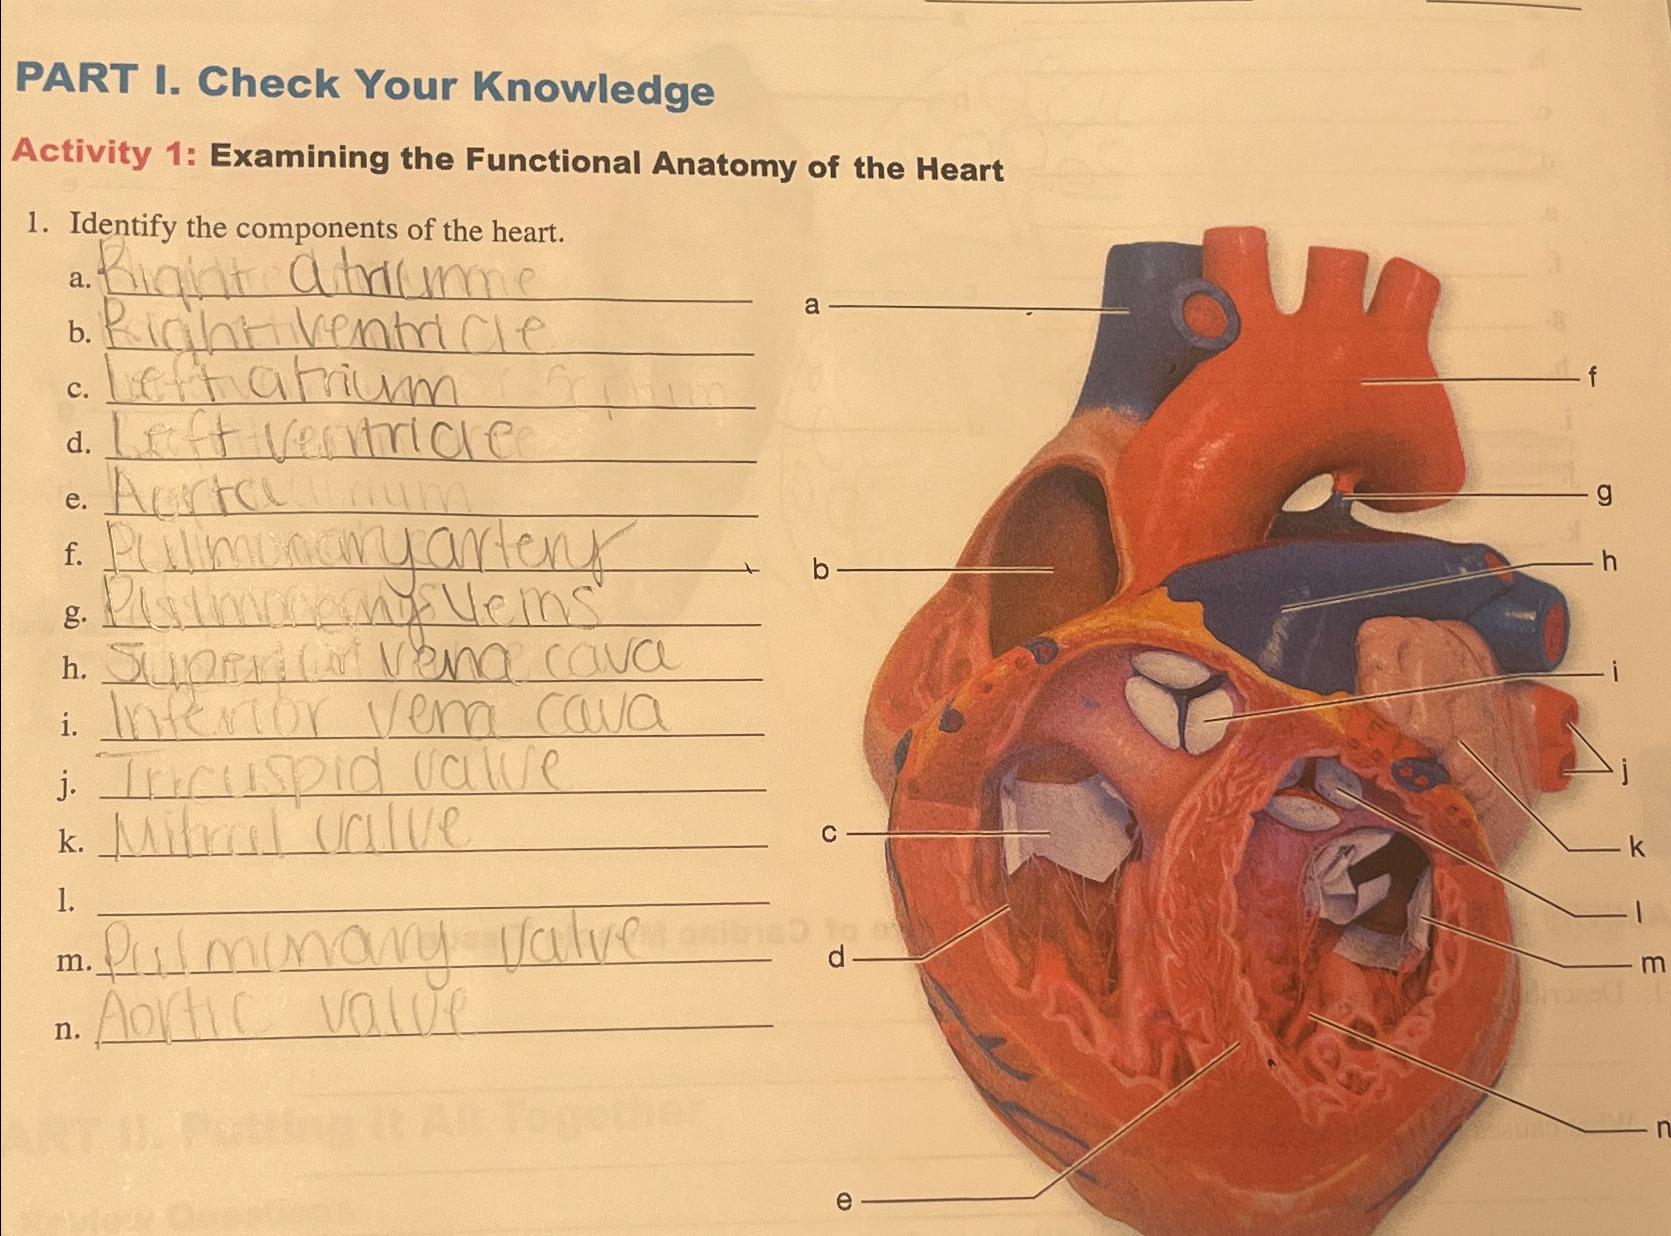 PART I. Check Your Knowledge
Activity 1: Examining the Functional Anatomy of the Heart
1. Identify the components of the heart.
a. Right atrium
b. Right ventricle
c. Left atrium
d. Left ventricle
e. Aorta
f. Pulmunary artery
g. veins
h. Superior vena cava
i. Inferior vena cava
j. Tricuspid valve
k. Mitral valve
l.
m. Pulminary valve
n. Aortic valve
a
f
g
h
b
i
j
c
k
l
d
m
n
e